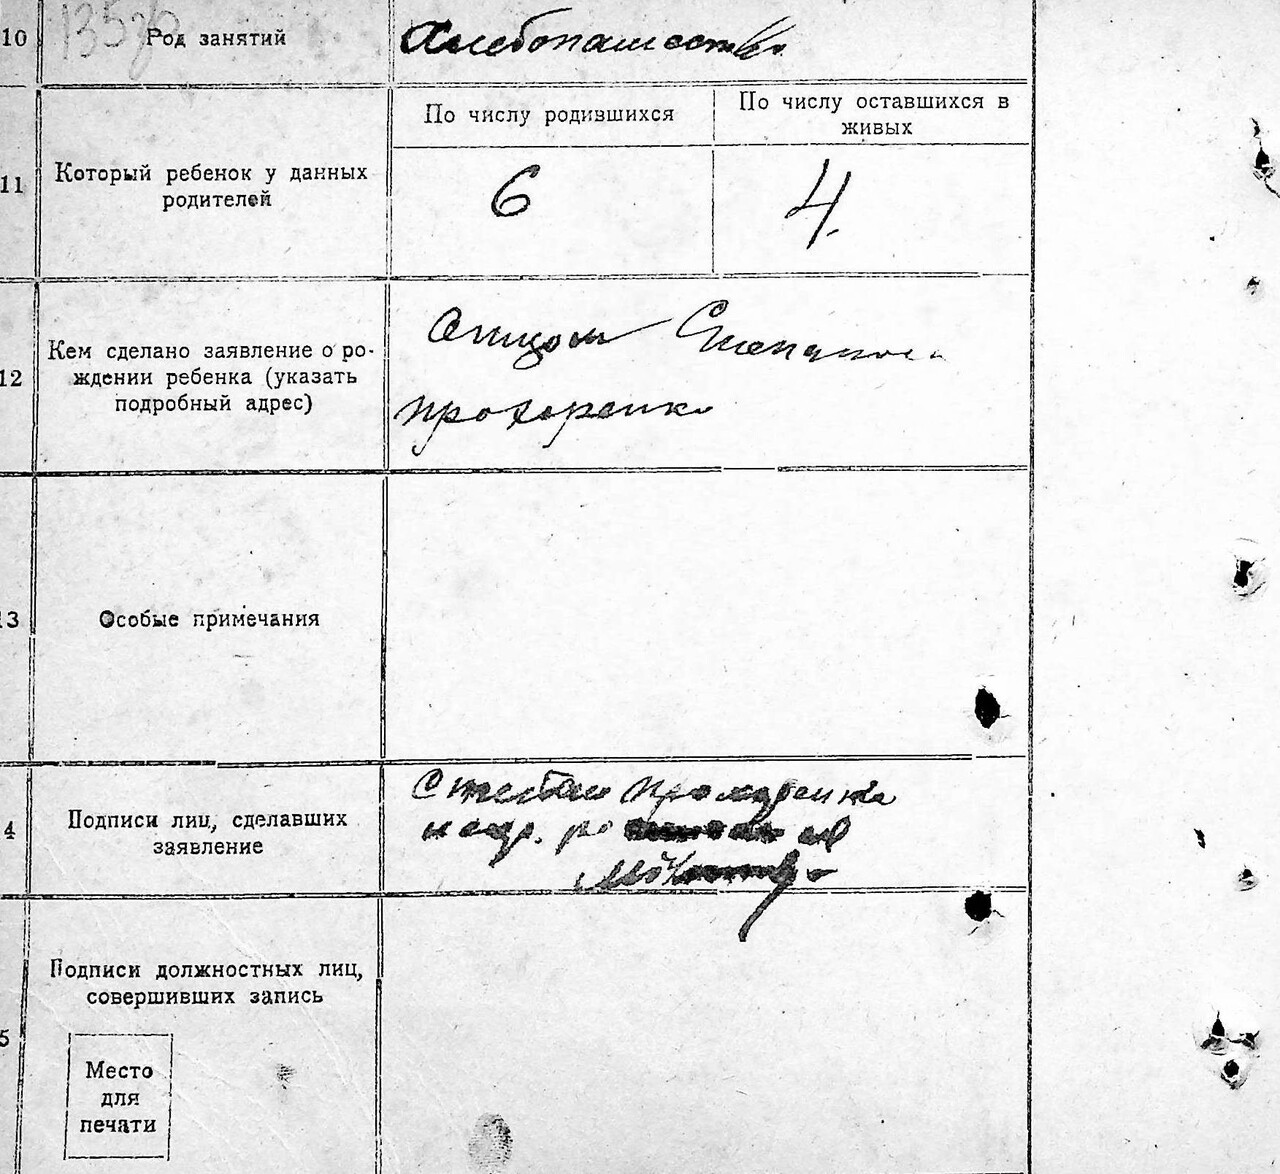 10
Род занятий
Хлебопашество
11
Который ребенок у данных
родителей
По числу родившихся
По числу оставшихся в
живых
6
4
12
Кем сделано заявление о ро-
ждении ребенка (указать
подробный адрес)
отцом Степаном
Прохоренко
13
Особые примечания
4
Подписи лиц, сделавших
заявление
Степан Прохоренко
5
Подписи должностных лиц,
совершивших запись
Место
для
печати